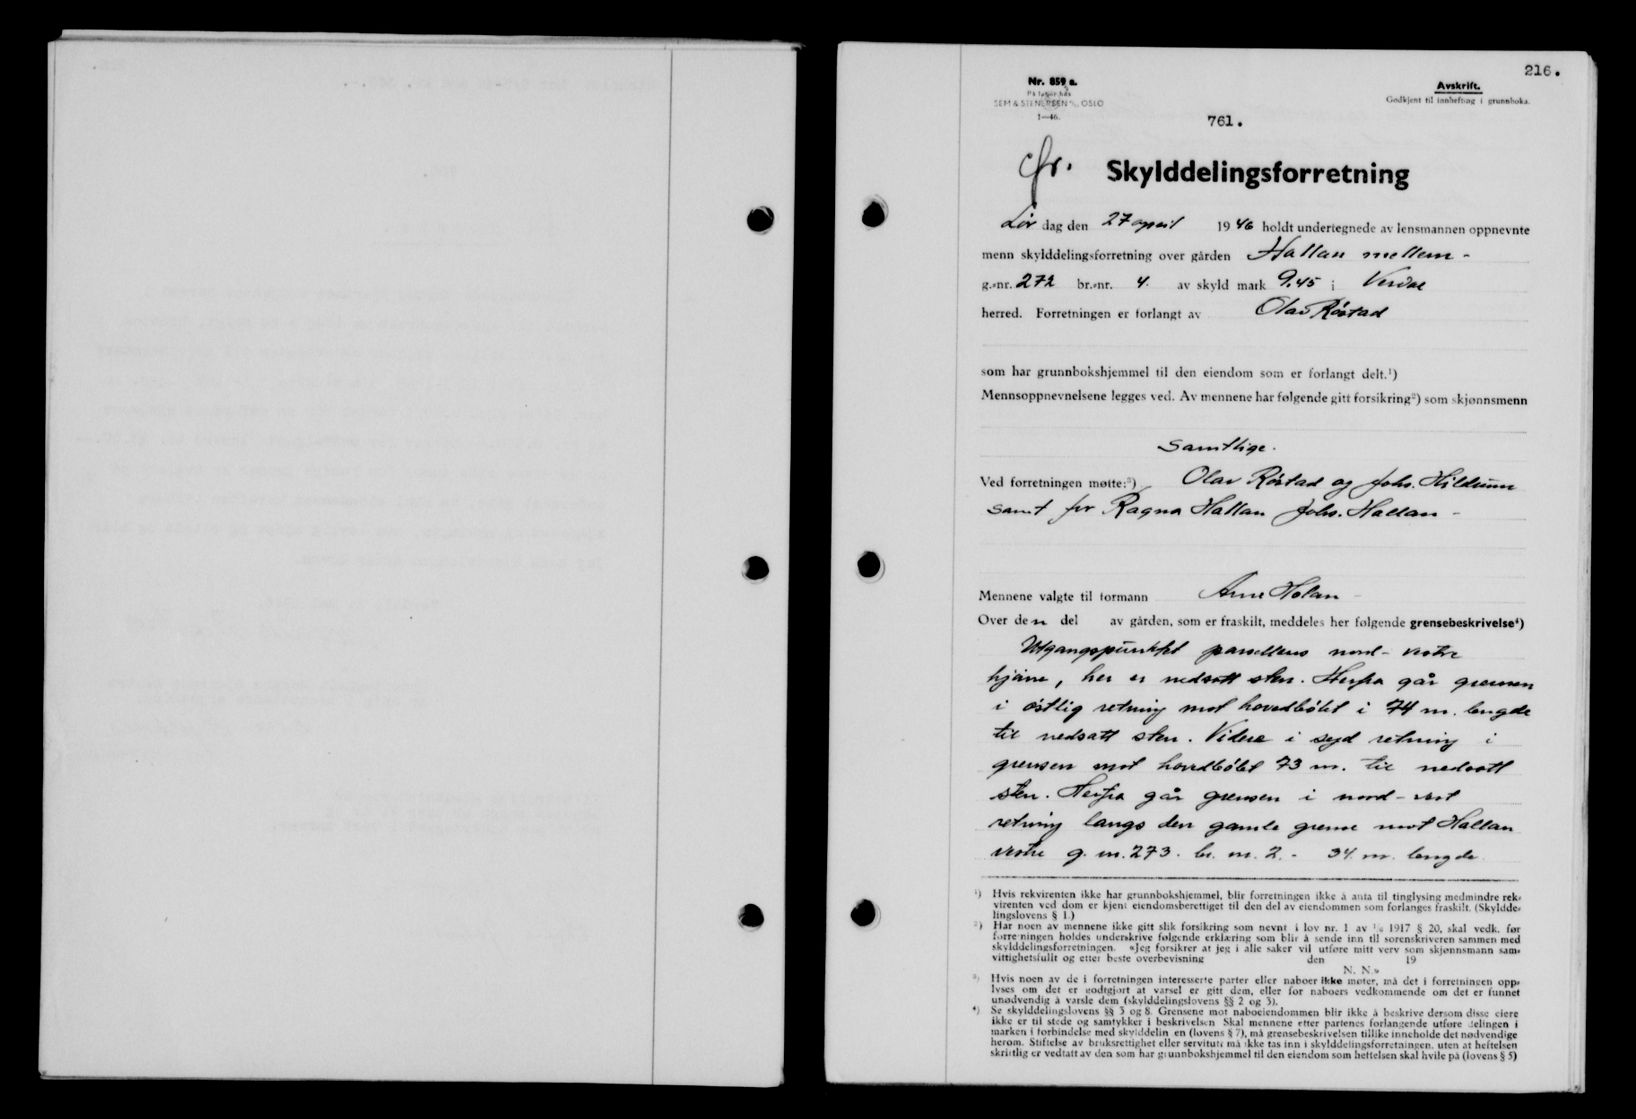 216.
Nr. 859 a.
På lager hos
SEM & STENERSEN A/S, OSLO
1—46.
Avskrift.
Godkjent til innhefting i grunnboka.
761.
Skylddelingsforretning
Lør dag den 27 april 1946 holdt undertegnede av lensmannen oppnevnte
menn skylddelingsforretning over gården Hallan mellem -
g.-nr. 272 br.-nr. 4. av skyld mark 9.45 i Verdal
herred. Forretningen er forlangt av Olav Røstad
som har grunnbokshjemmel til den eiendom som er forlangt delt.¹)
Mennsoppnevnelsene legges ved. Av mennene har følgende gitt forsikring²) som skjønnsmenn
Samtlige.
Ved forretningen møtte:³) Olav Røstad og Johs. Hildrum
samt for Ragna Hallan Johs. Hallan -
Mennene valgte til formann Arne Holan -
Over den del av gården, som er fraskilt, meddeles her følgende grensebeskrivelse⁴)
Utgangspunktet parsellens nord-vestre
hjørne, her er nedsatt sten. Herfra går grensen
i østlig retning mot hovedbølet i 74 m. lengde
til nedsatt sten. Videre i syd retning i
grensen mot hovedbølet 73 m. til nedsatt
sten. Herfra går grensen i nord-vest
retning langs den gamle grense mot Hallan
vestre g. nr. 273. br. nr. 2. - 34. m. lengde.
¹) Hvis rekvirenten ikke har grunnbokshjemmel, blir forretningen ikke å anta til tinglysing medmindre rek-
virenten ved dom er kjent eiendomsberettiget til den del av eiendommen som forlanges fraskilt. (Skyldde-
lingslovens § 1.)
²) Har noen av mennene ikke gitt slik forsikring som nevnt i lov nr. 1 av 1/6 1917 § 20, skal vedk. før
forretningen holdes underskrive følgende erklæring som blir å sende inn til sorenskriveren sammen med
skylddelingsforretningen. «Jeg forsikrer at jeg i alle saker vil utføre mitt verv som skjønnsmann sam-
vittighetsfullt og etter beste overbevisning den 19
N. N.»
³) Hvis noen av de i forretningen interesserte parter eller naboer ikke møter, må det i forretningen opp-
lyses om det er godtgjort at varsel er gitt dem, eller for naboers vedkommende om det er funnet
unødvendig å varsle dem (skylddelingslovens §§ 2 og 3).
⁴) Se skylddelingslovens §§ 3 og 8. Grensene mot naboeiendommen blir ikke å beskrive dersom disse eiere
ikke er til stede og samtykker i beskrivelsen Skal mennene etter partenes forlangende utføre delingen i
marken i forbindelse med skylddelin en (lovens § 7), må grensebeskrivelsen tillike inneholde det nødvendige
herom. Stiftelse av bruksrettighet eller servitutt må ikke tas inn i skylddelingsforretningen, uten at heftelsen
skriftlig er vedtatt av den som har grunnbokshjemmel til den eiendom som heftelsen skal hvile på (lovens § 5)